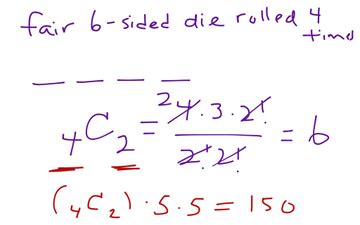 fair 6-sided die rolled 4 times
__ __ __ __
₄C₂ = ²4·3·2! / 2!2! = 6
(₄C₂)·5·5=150